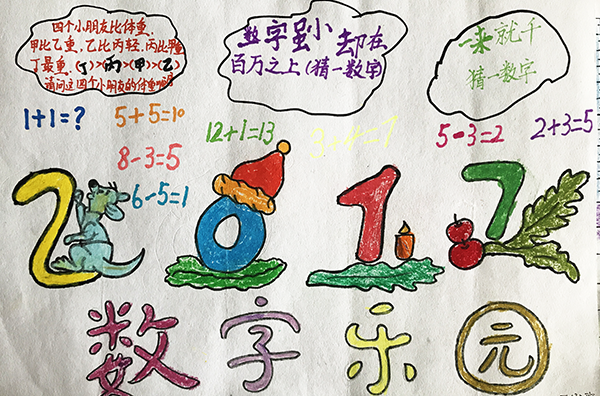 四个小朋友比体重.
甲比乙重,乙比丙轻,丙比甲重
丁最重.(丁)>(丙)>(甲)>(乙)
请问这四个小朋友的体重
数字虽小却在
百万之上(猜一数字)
一来就千
猜一数字
1+1=?
5+5=10
8-3=5
6-5=1
12+1=13
3+4=7
5-3=2
2+3=5
2017
数字乐园